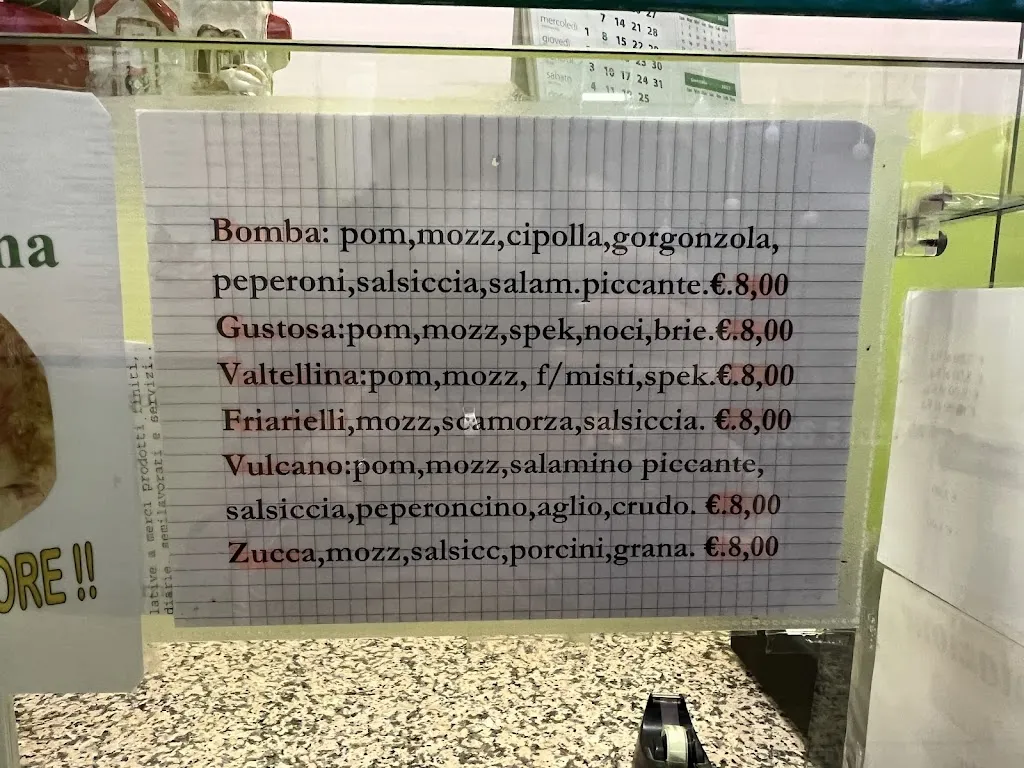 mercoledì 7 14 21 28
giovedì 1 8 15 22
3 10 17 24 31
sabato
4 11 25
na
Bomba: pom,mozz,cipolla,gorgonzola,
peperoni,salsiccia,salam.piccante.€.8,00
Gustosa:pom,mozz,spek,noci,brie.€.8,00
Valtellina:pom,mozz, f/misti,spek.€.8,00
Friarielli,mozz,scamorza,salsiccia. €.8,00
Vulcano:pom,mozz,salamino piccante,
salsiccia,peperoncino,aglio,crudo. €.8,00
Zucca,mozz,salsicc,porcini,grana. €.8,00
lativa a merci prodotti finiti,
diarie, semilavorati e servizi..
ORE !!